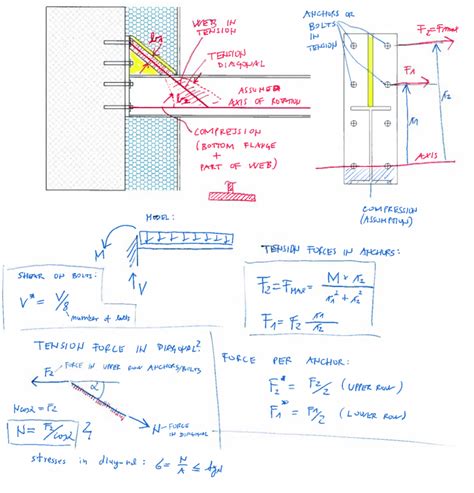 WEB IN
TENSION
TENSION
DIAGONAL
ASSUMED
AXIS OF ROTATION
COMPRESSION
(BOTTOM FLANGE
+
PART OF WEB)
ANCHORS OR
BOLTS
IN
TENSION
F₂ = Fmax
F₁
r₁
r₂
AXIS
COMPRESSION
(ASSUMPTION)
MODEL:
M
V
SHEAR ON BOLTS:
V* = V/8
number of bolts
TENSION FORCES IN ANCHORS:
F₂ = Fmax = M × r₂ / r₁² + r₂²
F₁ = F₂ r₁/r₂
TENSION FORCE IN DIAGONAL?
F₂ - FORCE IN UPPER ROW ANCHORS/BOLTS
α
N cosα = F₂
N = F₂/cosα
N - FORCE
IN DIAGONAL
stresses in diagonal: σ = N/A ≤
FORCE PER ANCHOR:
F₂* = F₂/2 (UPPER ROW)
F₁* = F₁/2 (LOWER ROW)